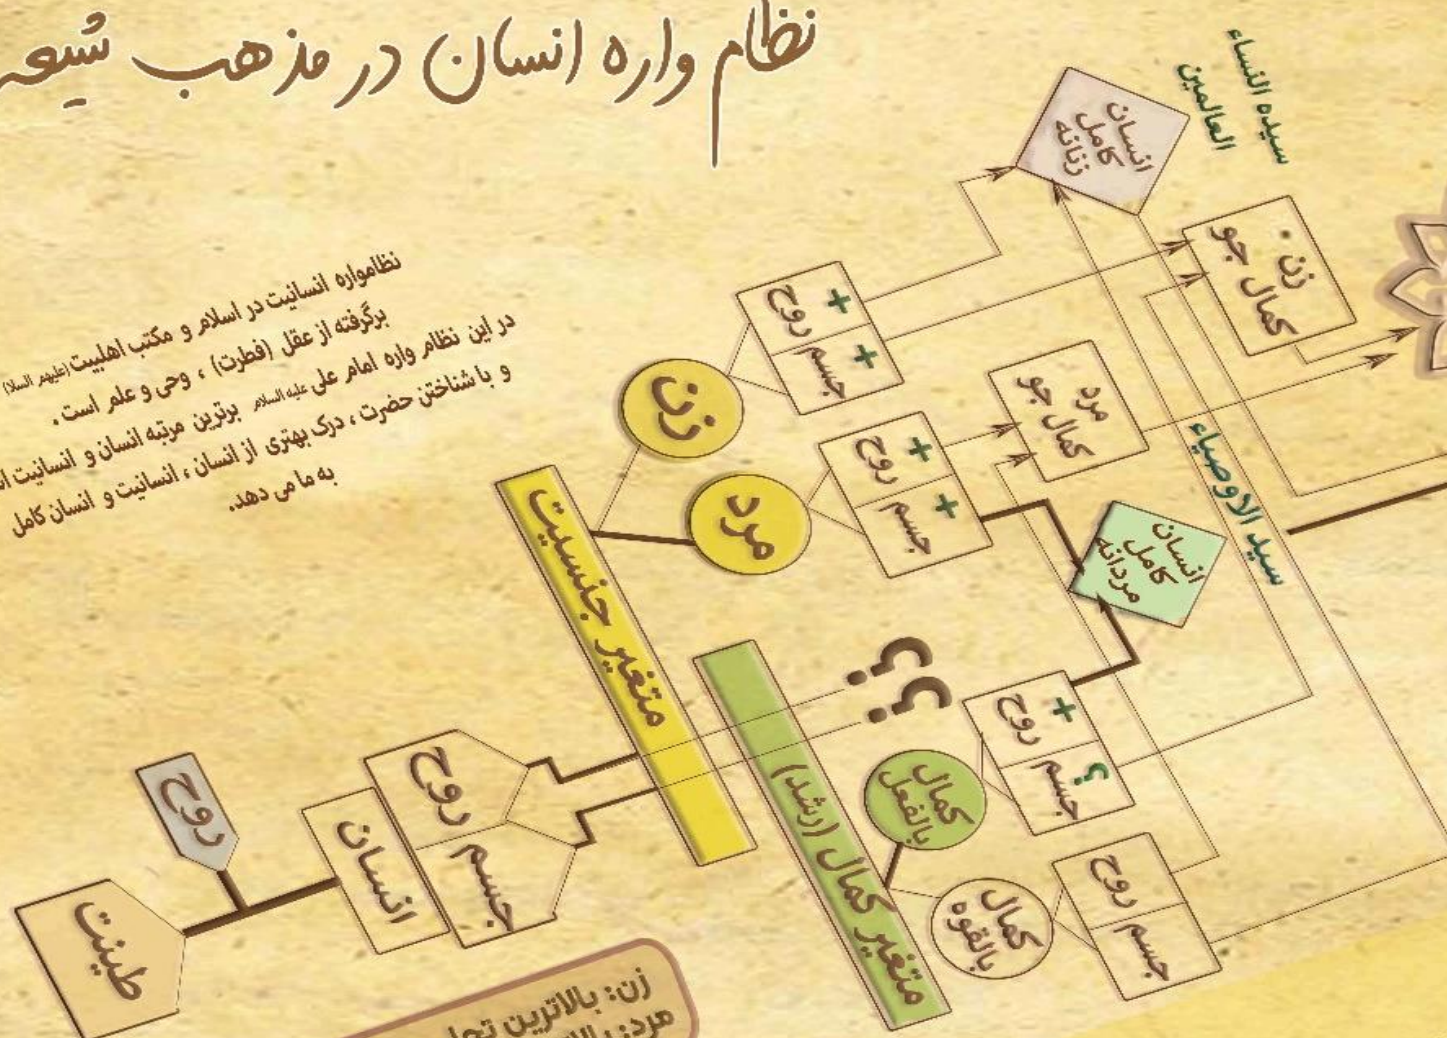 نظام واره انسان در مذهب شیعه
نظامواره انسانیت در اسلام و مکتب اهلبیت (علیهم السلام)
برگرفته از عقل (فطرت) ، وحی و علم است .
در این نظام واره امام علی علیه السلام برترین مرتبه انسان و انسانیت
و با شناختن حضرت ، درک بهتری از انسان ، انسانیت و انسان کامل
به ما می دهد.
سیده النساء
العالمین
انسان
کامل
زنانه
زن .
کمال جو
+ روح
+ جسم
زن
مرد
کمال جو
+ روح
+ جسم
مرد
سید الاوصیاء
انسان
کامل
مردانه
متغیر جنسیت
؟؟
+ روح
؟ جسم
کمال
بالفعل
متغیر کمال (رشد)
کمال
بالقوه
روح
جسم
روح
جسم
انسان
روح
طینت
زن: بالاترین
مرد: